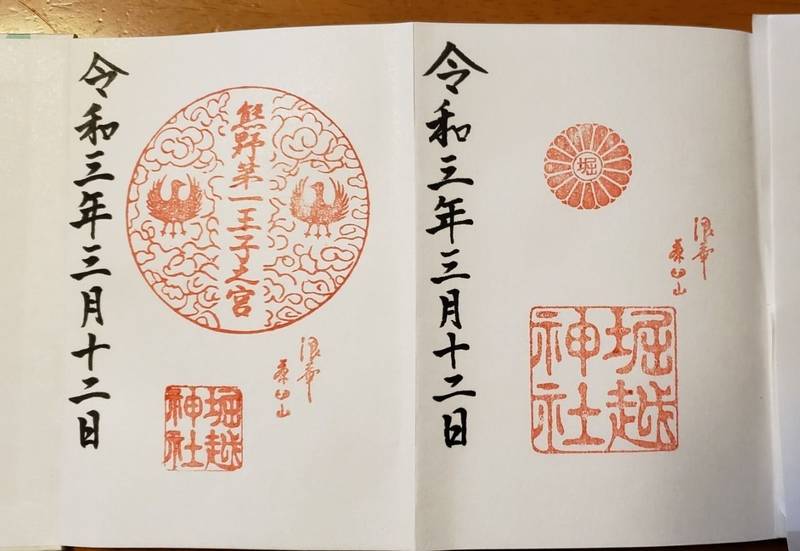 浪華
茶臼山
堀
堀越
神社
令和三年三月十二日
浪華
茶臼山
熊野第一王子之宮
堀越
神社
令和三年三月十二日